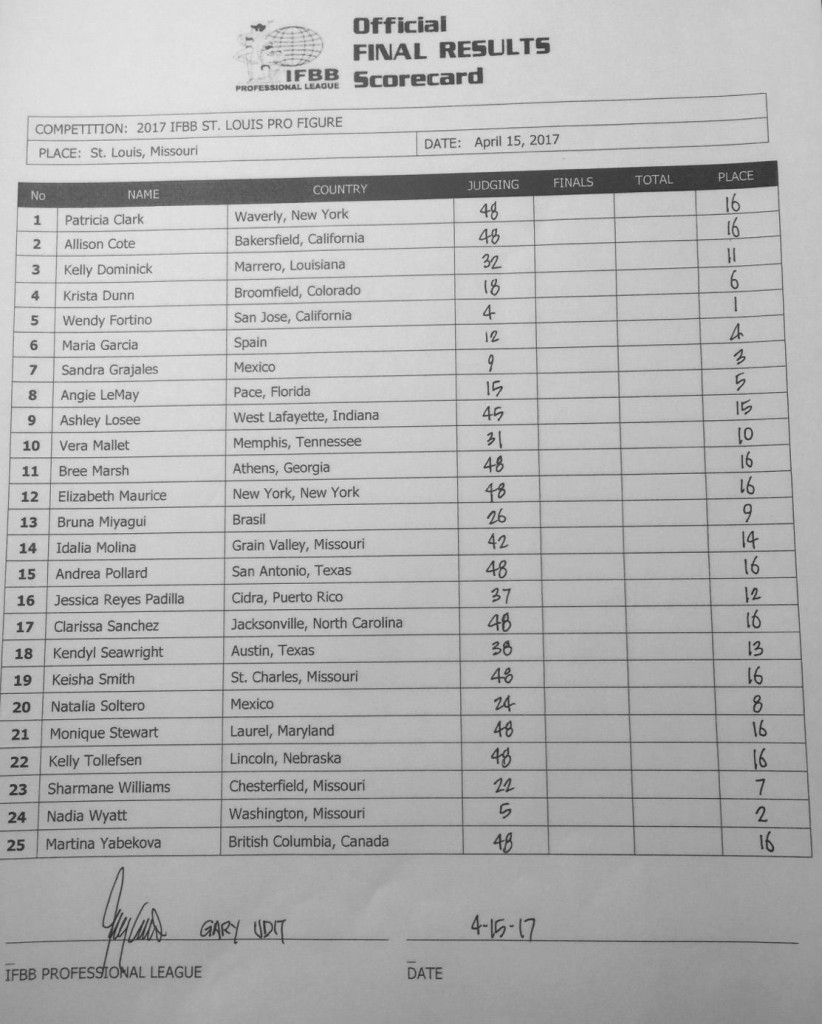 Official
FINAL RESULTS
Scorecard
IFBB
PROFESSIONAL LEAGUE
COMPETITION: 2017 IFBB ST. LOUIS PRO FIGURE
PLACE: St. Louis, Missouri DATE: April 15, 2017
No NAME COUNTRY JUDGING FINALS TOTAL PLACE
1 Patricia Clark Waverly, New York 48 16
2 Allison Cote Bakersfield, California 48 16
3 Kelly Dominick Marrero, Louisiana 32 11
4 Krista Dunn Broomfield, Colorado 18 6
5 Wendy Fortino San Jose, California 4 1
6 Maria Garcia Spain 12 4
7 Sandra Grajales Mexico 9 3
8 Angie LeMay Pace, Florida 15 5
9 Ashley Losee West Lafayette, Indiana 45 15
10 Vera Mallet Memphis, Tennessee 31 10
11 Bree Marsh Athens, Georgia 48 16
12 Elizabeth Maurice New York, New York 48 16
13 Bruna Miyagui Brasil 26 9
14 Idalia Molina Grain Valley, Missouri 42 14
15 Andrea Pollard San Antonio, Texas 48 16
16 Jessica Reyes Padilla Cidra, Puerto Rico 37 12
17 Clarissa Sanchez Jacksonville, North Carolina 48 16
18 Kendyl Seawright Austin, Texas 38 13
19 Keisha Smith St. Charles, Missouri 48 16
20 Natalia Soltero Mexico 24 8
21 Monique Stewart Laurel, Maryland 48 16
22 Kelly Tollefsen Lincoln, Nebraska 48 16
23 Sharmane Williams Chesterfield, Missouri 22 7
24 Nadia Wyatt Washington, Missouri 5 2
25 Martina Yabekova British Columbia, Canada 48 16
GARY UDIT 4-15-17
IFBB PROFESSIONAL LEAGUE DATE